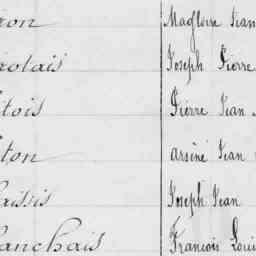 ron Magloire Jean
rolais Joseph Pierre
tois Pierre Jean
ton Arsène Jean
aissis Joseph Jean
lanchais François Loui